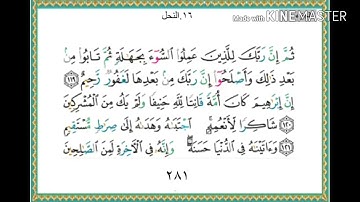 ١٦.النحل
Made with KINEMASTER
ثُمَّ إِنَّ رَبَّكَ لِلَّذِينَ عَمِلُوا۟ ٱلسُّوٓءَ بِجَهَـٰلَةٍ ثُمَّ تَابُوا۟ مِنۢ
بَعْدِ ذَٰلِكَ وَأَصْلَحُوٓا۟ إِنَّ رَبَّكَ مِنۢ بَعْدِهَا لَغَفُورٌ رَّحِيمٌ ١١٩
إِنَّ إِبْرَٰهِيمَ كَانَ أُمَّةً قَانِتًا لِّلَّهِ حَنِيفًا وَلَمْ يَكُ مِنَ ٱلْمُشْرِكِينَ
١٢٠ شَاكِرًا لِّأَنْعُمِهِ ٱجْتَبَىٰهُ وَهَدَىٰهُ إِلَىٰ صِرَٰطٍ مُّسْتَقِيمٍ
١٢١ وَءَاتَيْنَـٰهُ فِى ٱلدُّنْيَا حَسَنَةً وَإِنَّهُۥ فِى ٱلْـَٔاخِرَةِ لَمِنَ ٱلصَّـٰلِحِينَ
٢٨١